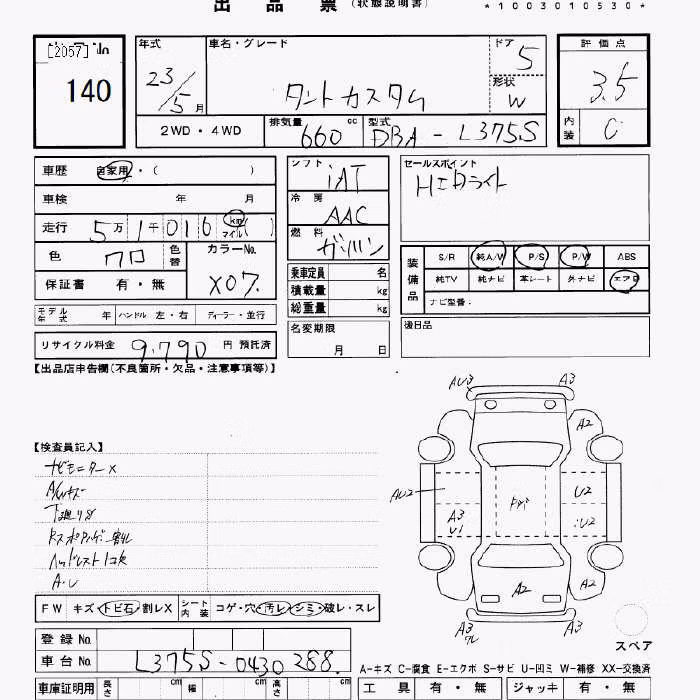 出品票 (状態説明書) *1003010530*
[2057] No. 140
年式 23/5月
車名・グレード タントカスタム
ドア 5
形状 W
評価点 3.5
内装 C
2WD・4WD
排気量 660 cc
型式 DBA-L375S
車歴 自家用・( )
車検 年 月
走行 5万1千016 km マイル ( )
色 クロ 色替
カラーNo. X07.
保証書 有・無
モデル年式 年 ハンドル 左・右 ディーラー・並行
リサイクル料金 9,790 円 預託済
シフト iAT
冷房 AAC
燃料 ガソリン
乗車定員 名
積載量 kg
総重量 kg
名変期限 月 日
セールスポイント
HIDライト
装備品 S/R 純A/W P/S P/W ABS
純TV 純ナビ 革シート 外ナビ エアB
ナビ型番:
後日品
【出品店申告欄(不良箇所・欠品・注意事項等)】
【検査員記入】
ナビモニターX
A/Wキズ
下廻りサ
ヘッドレスト1コ欠
A・U
AU3 A3
A2
AU2 U2
A3 U2
U1
A2 A2
A3 A3
ワレ
スペア
FW キズ・トビ石・割レX シート内装 コゲ・穴・汚レ・シミ・破レ・スレ
登録No.
車台No. L375S-0430288.
A-キズ C-腐食 E-エクボ S-サビ U-凹ミ W-補修 XX-交換済
車庫証明用 長さ cm 幅 cm 高さ cm
工具 有・無 ジャッキ 有・無